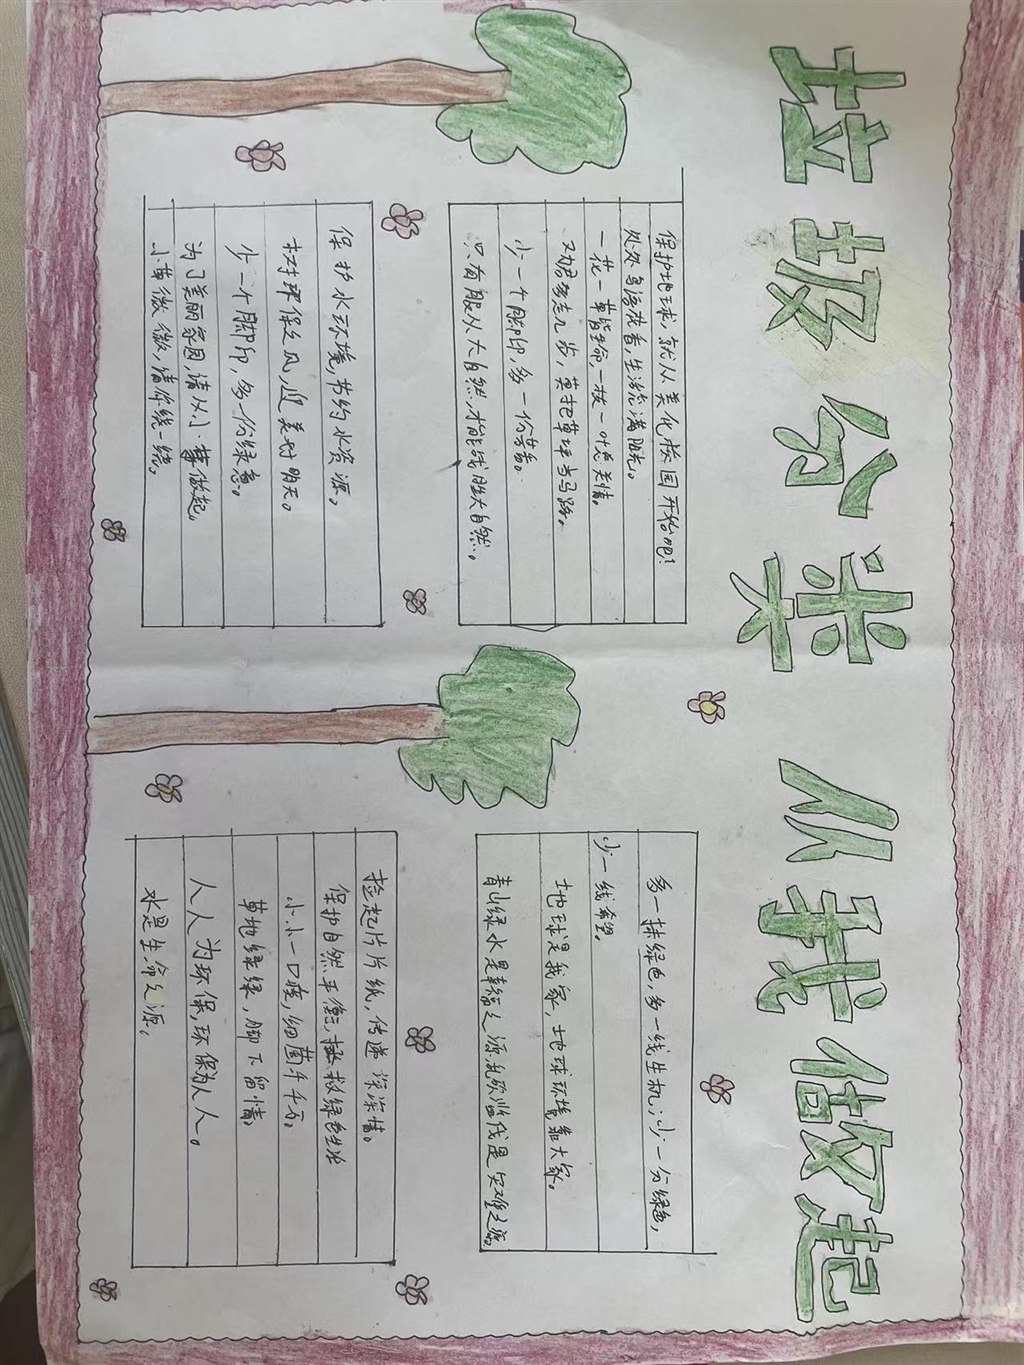 垃圾分类 从我做起
保护地球,就从美化校园开始吧!
处处鸟语花香,生活充满阳光。
一花一草皆生命,一枝一叶总关情。
劝君多走几步,莫把草坪当马路。
少一个脚印,多一份芳香。
只有服从大自然,才能战胜大自然。
保护水环境,节约水资源。
树环保之风,迎美好明天。
少一个脚印,多一份绿意。
为了美丽家园,请从小事做起,
小草微微,请你绕一绕。
多一抹绿色,多一线生机;少一分绿色,
少一线希望。
地球是我家,地球环境靠大家。
青山绿水是幸福之源,乱砍滥伐是灾难之源
捡起片片纸,传递深深情。
保护自然平衡,拯救绿色生命
小小一口痰,细菌千千万。
草地绿绿,脚下留情。
人人为环保,环保为人人。
水是生命之源。